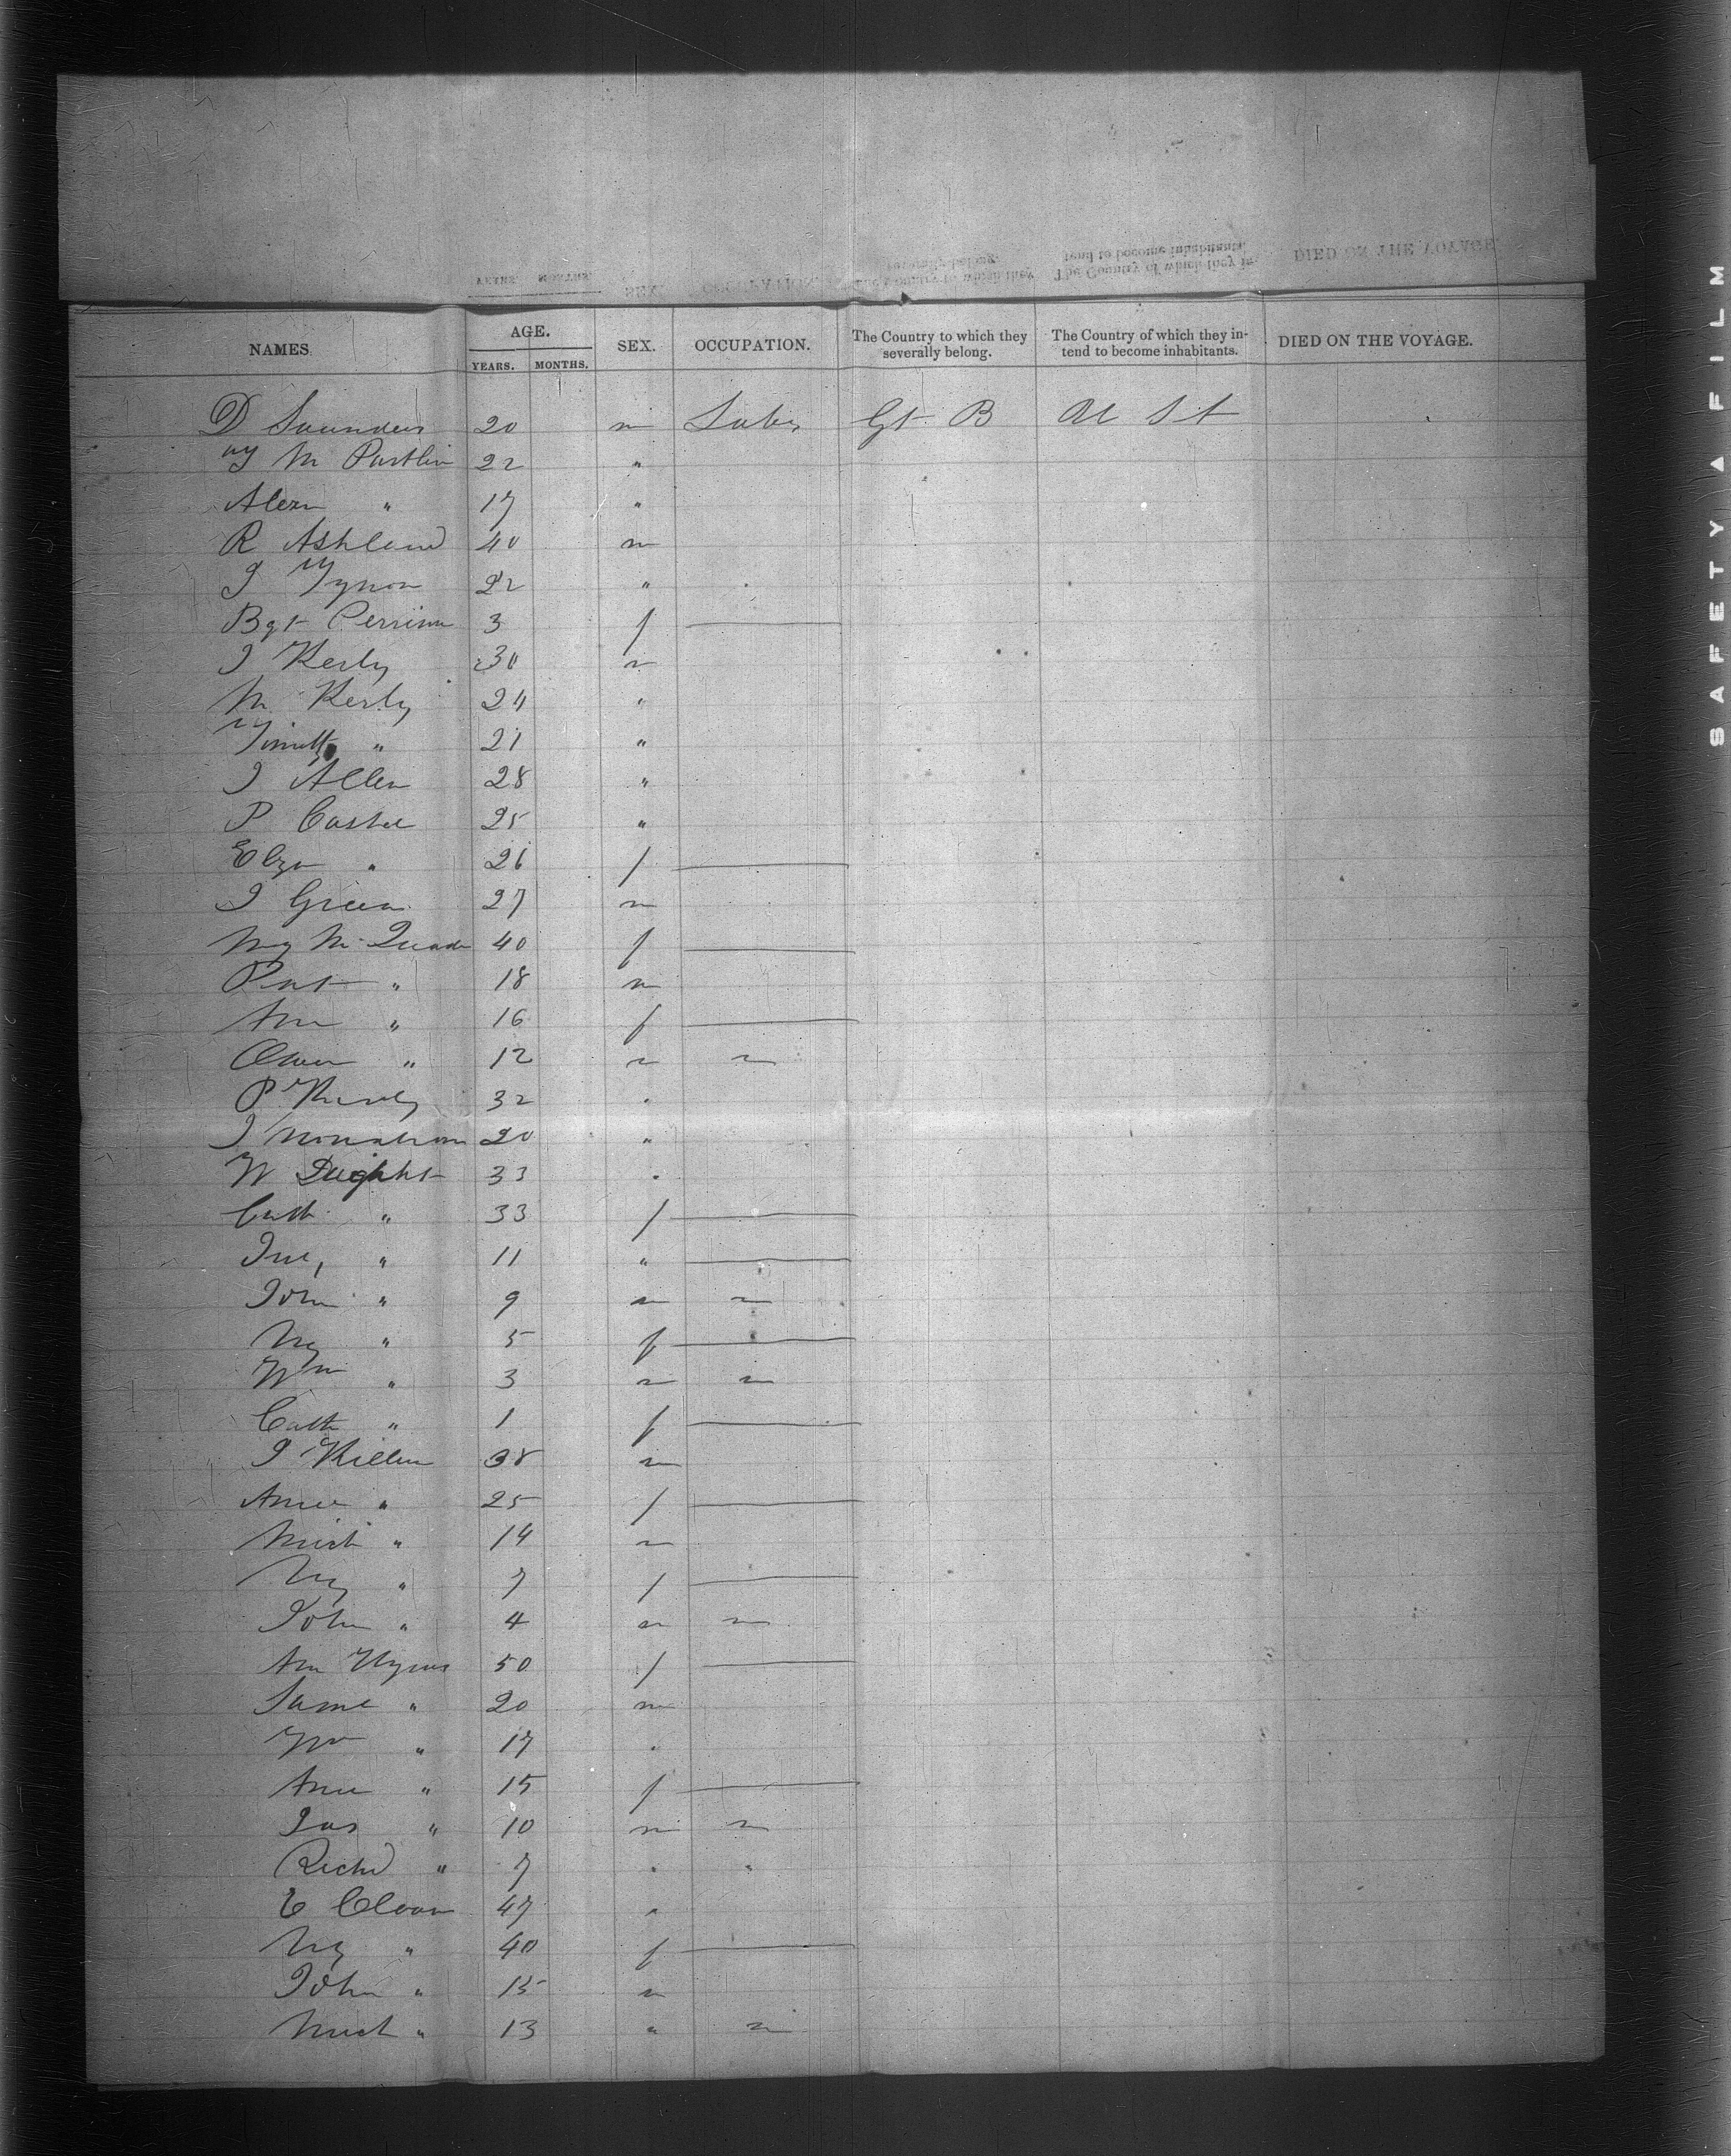 NAMES. AGE. YEARS. MONTHS. SEX. OCCUPATION. The Country to which they severally belong. The Country of which they intend to become inhabitants. DIED ON THE VOYAGE.
D Saunders 20 m Labr Gt B U St
M Partlin 22 "
Alexr " 17 "
R Ashland 40 m
J Tynon 22 "
Bgt 3 f
J Kerly 30 m
M Kerly 24 "
" 21 "
J Allen 28 "
P Cashel 25 "
Eliza " 26 f
J Green 27 m
My McQuade 40 f
Pat " 18 m
Ann " 16 f
Owen " 12 m
P 32 "
J Monahan 20 "
W Dught 33 "
Cath " 33 f
Jne, " 11 "
John " 9 m
My " 5 f
Wm " 3 m
Cath " 1 f
J Killen 38 m
Anne " 25 f
Mich " 14 m
My " 7 f
John " 4 m
Ann 50 f
Jame " 20 m
Wm " 17 "
Anne " 15 f
Jas " 10 m
Richd " 7 " "
E Cloan 47 "
My " 40 f
John " 15 m
Mich " 13 "
SAFETY ▲ FILM